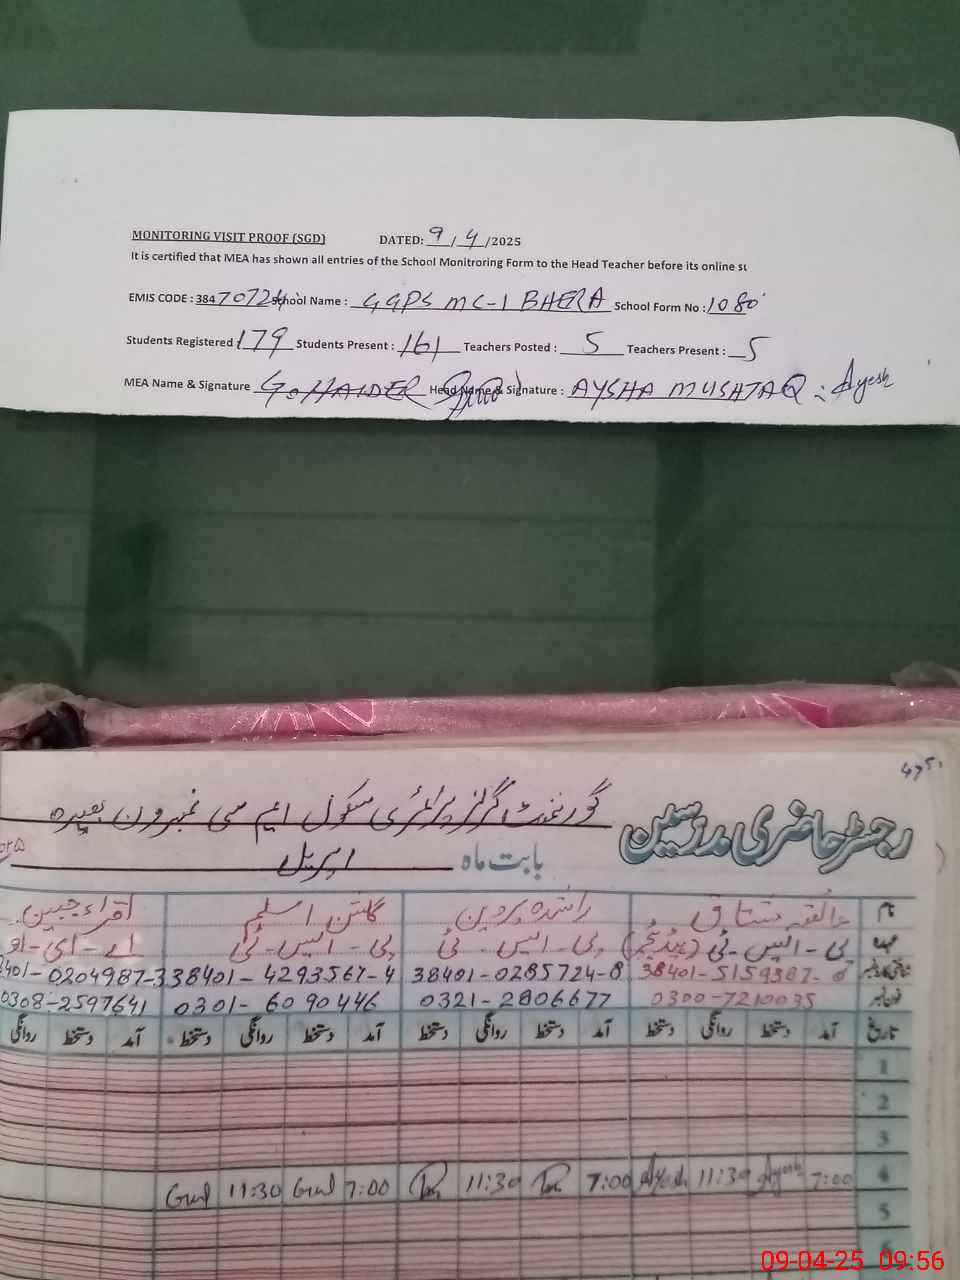 MONITORING VISIT PROOF (SGD) DATED: 9/4/2025
It is certified that MEA has shown all entries of the School Monitroring Form to the Head Teacher before its online
EMIS CODE : 38470724 School Name : GGPS MC-1 BHERA School Form No : 1080
Students Registered 179 Students Present : 161 Teachers Posted : 5 Teachers Present : 5
MEA Name & Signature G. HAIDER Head Name & Signature : AYSHA MUSHTAQ : Ayesh
475
رجسٹر حاضری مدرسین گورنمنٹ گرلز پرائمری سکول ایم سی نمبر ون بھیرہ
بابت ماہ اپریل
نام مشتاق راشدہ پروین گلشن اسلم اقراء جبین
عہدہ پی - ایس - ٹی (ہیڈ ٹیچر) پی - ایس - ٹی پی - ایس - ٹی اے - ای - او
38401-5159387-8 38401-0285724-8 38401-4293567-4 0204987-3
فون نمبر 0300-7210035 0321-2806677 0301-6090446 0308-2597641
تاریخ آمد دستخط روانگی دستخط آمد دستخط روانگی دستخط آمد دستخط روانگی دستخط آمد دستخط روانگی
1
2
3
4 7:00 Ayesh 11:30 Ayesh 7:00 11:30 7:00 Gul 11:30 Gul
5
6
09-04-25 09:56